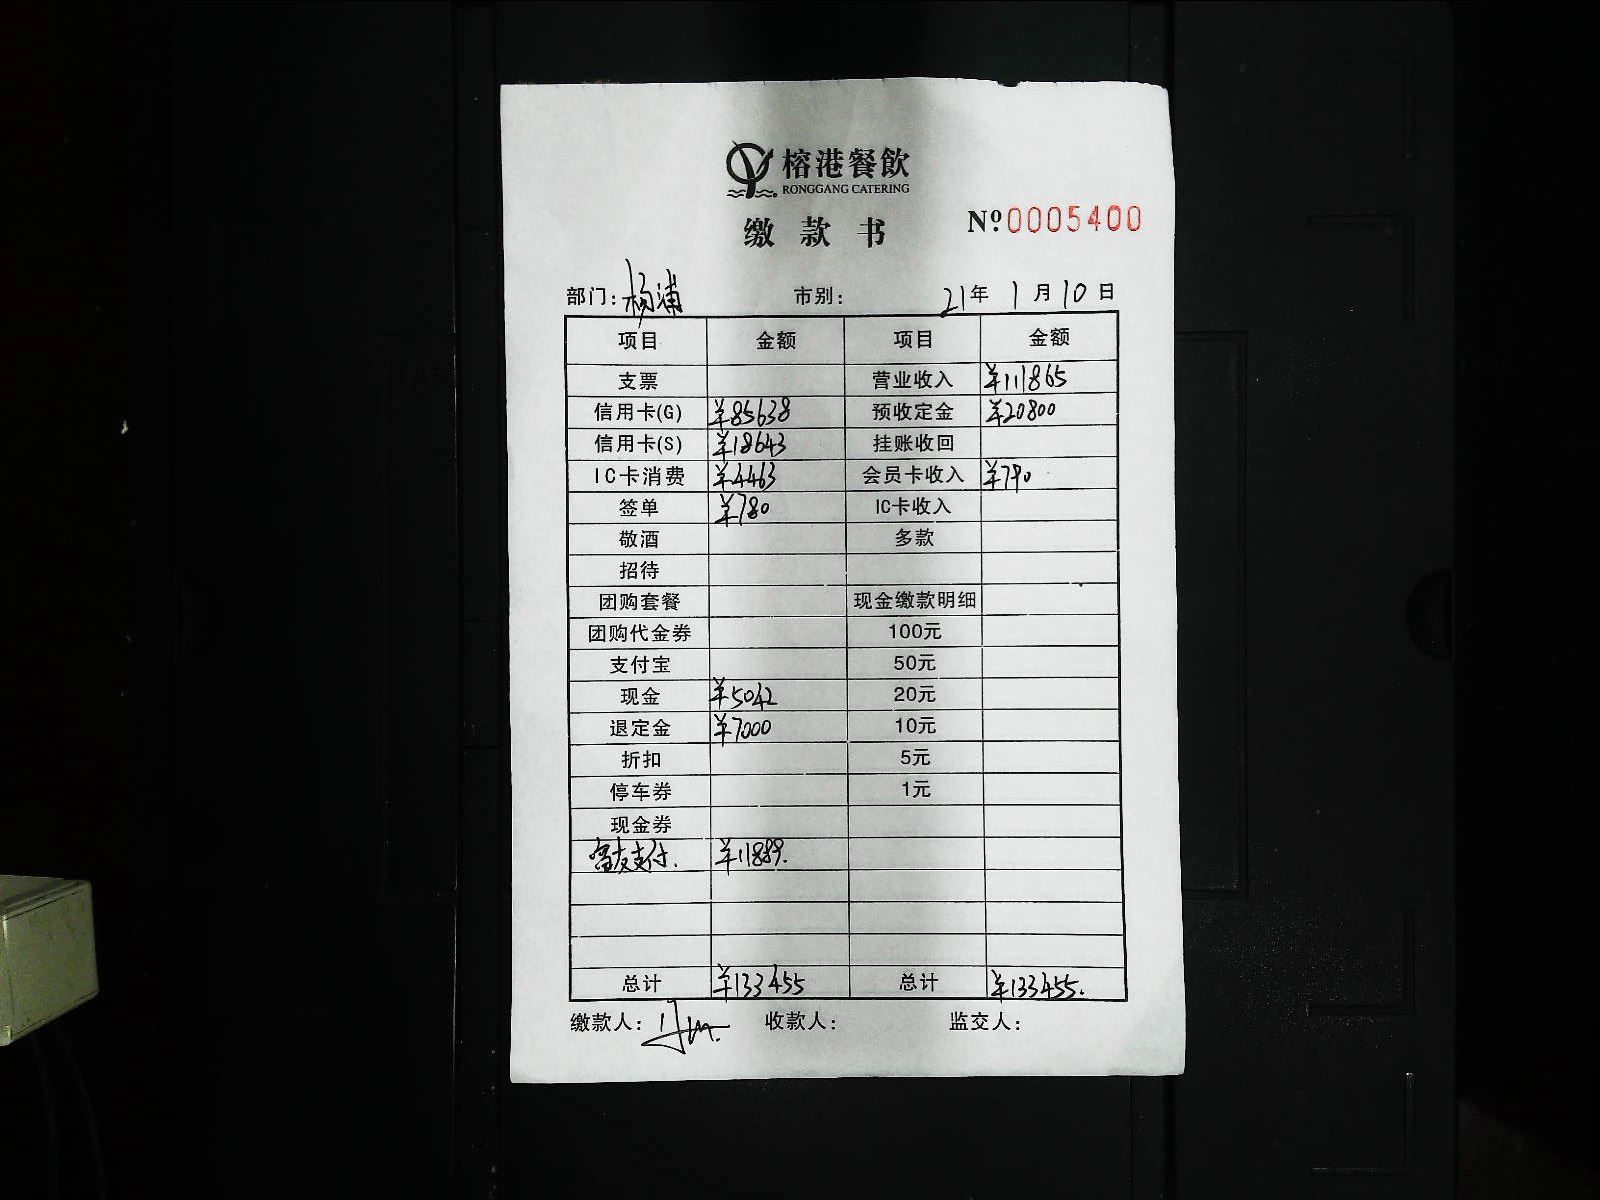 榕港餐飲
RONGGANG CATERING
缴款书 №0005400
部门：杨浦 市别： 21年 1月10日
项目 金额 项目 金额
支票 营业收入 ¥111865
信用卡(G) ¥85638 预收定金 ¥20800
信用卡(S) ¥18643 挂账收回
IC卡消费 ¥4463 会员卡收入 ¥790
签单 ¥780 IC卡收入
敬酒 多款
招待
团购套餐 现金缴款明细
团购代金券 100元
支付宝 50元
现金 ¥5042 20元
退定金 ¥7000 10元
折扣 5元
停车券 1元
现金券
富友支付. ¥11889.
总计 ¥133455 总计 ¥133455.
缴款人： 收款人： 监交人：